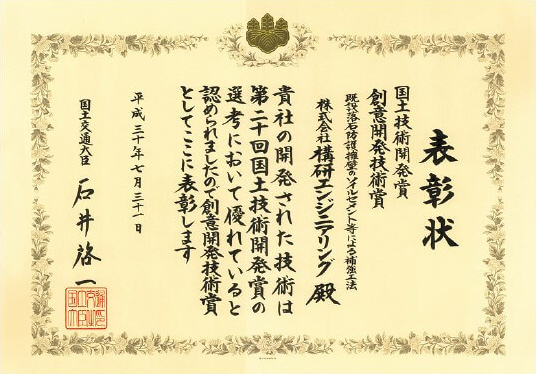 表彰状
国土技術開発賞
創意開発技術賞
既設落石防護擁壁のソイルセメント等による補強工法
株式会社 構研エンジニアリング 殿
貴社の開発された技術は
第二十回国土技術開発賞の
選考において優れていると
認められましたので創意開発技術賞
としてここに表彰します
平成三十年七月三十一日
国土交通大臣
石井啓一